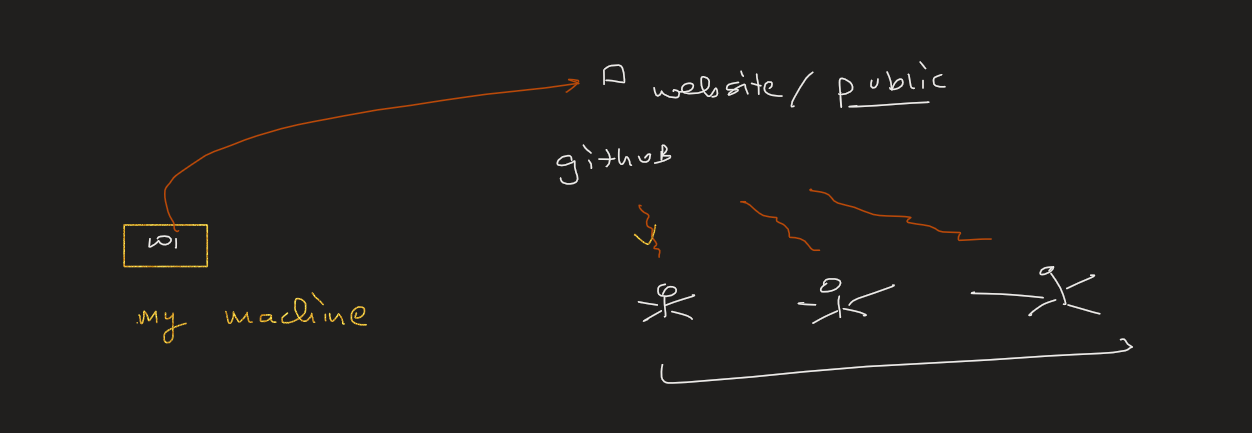 website/public
github
my machine